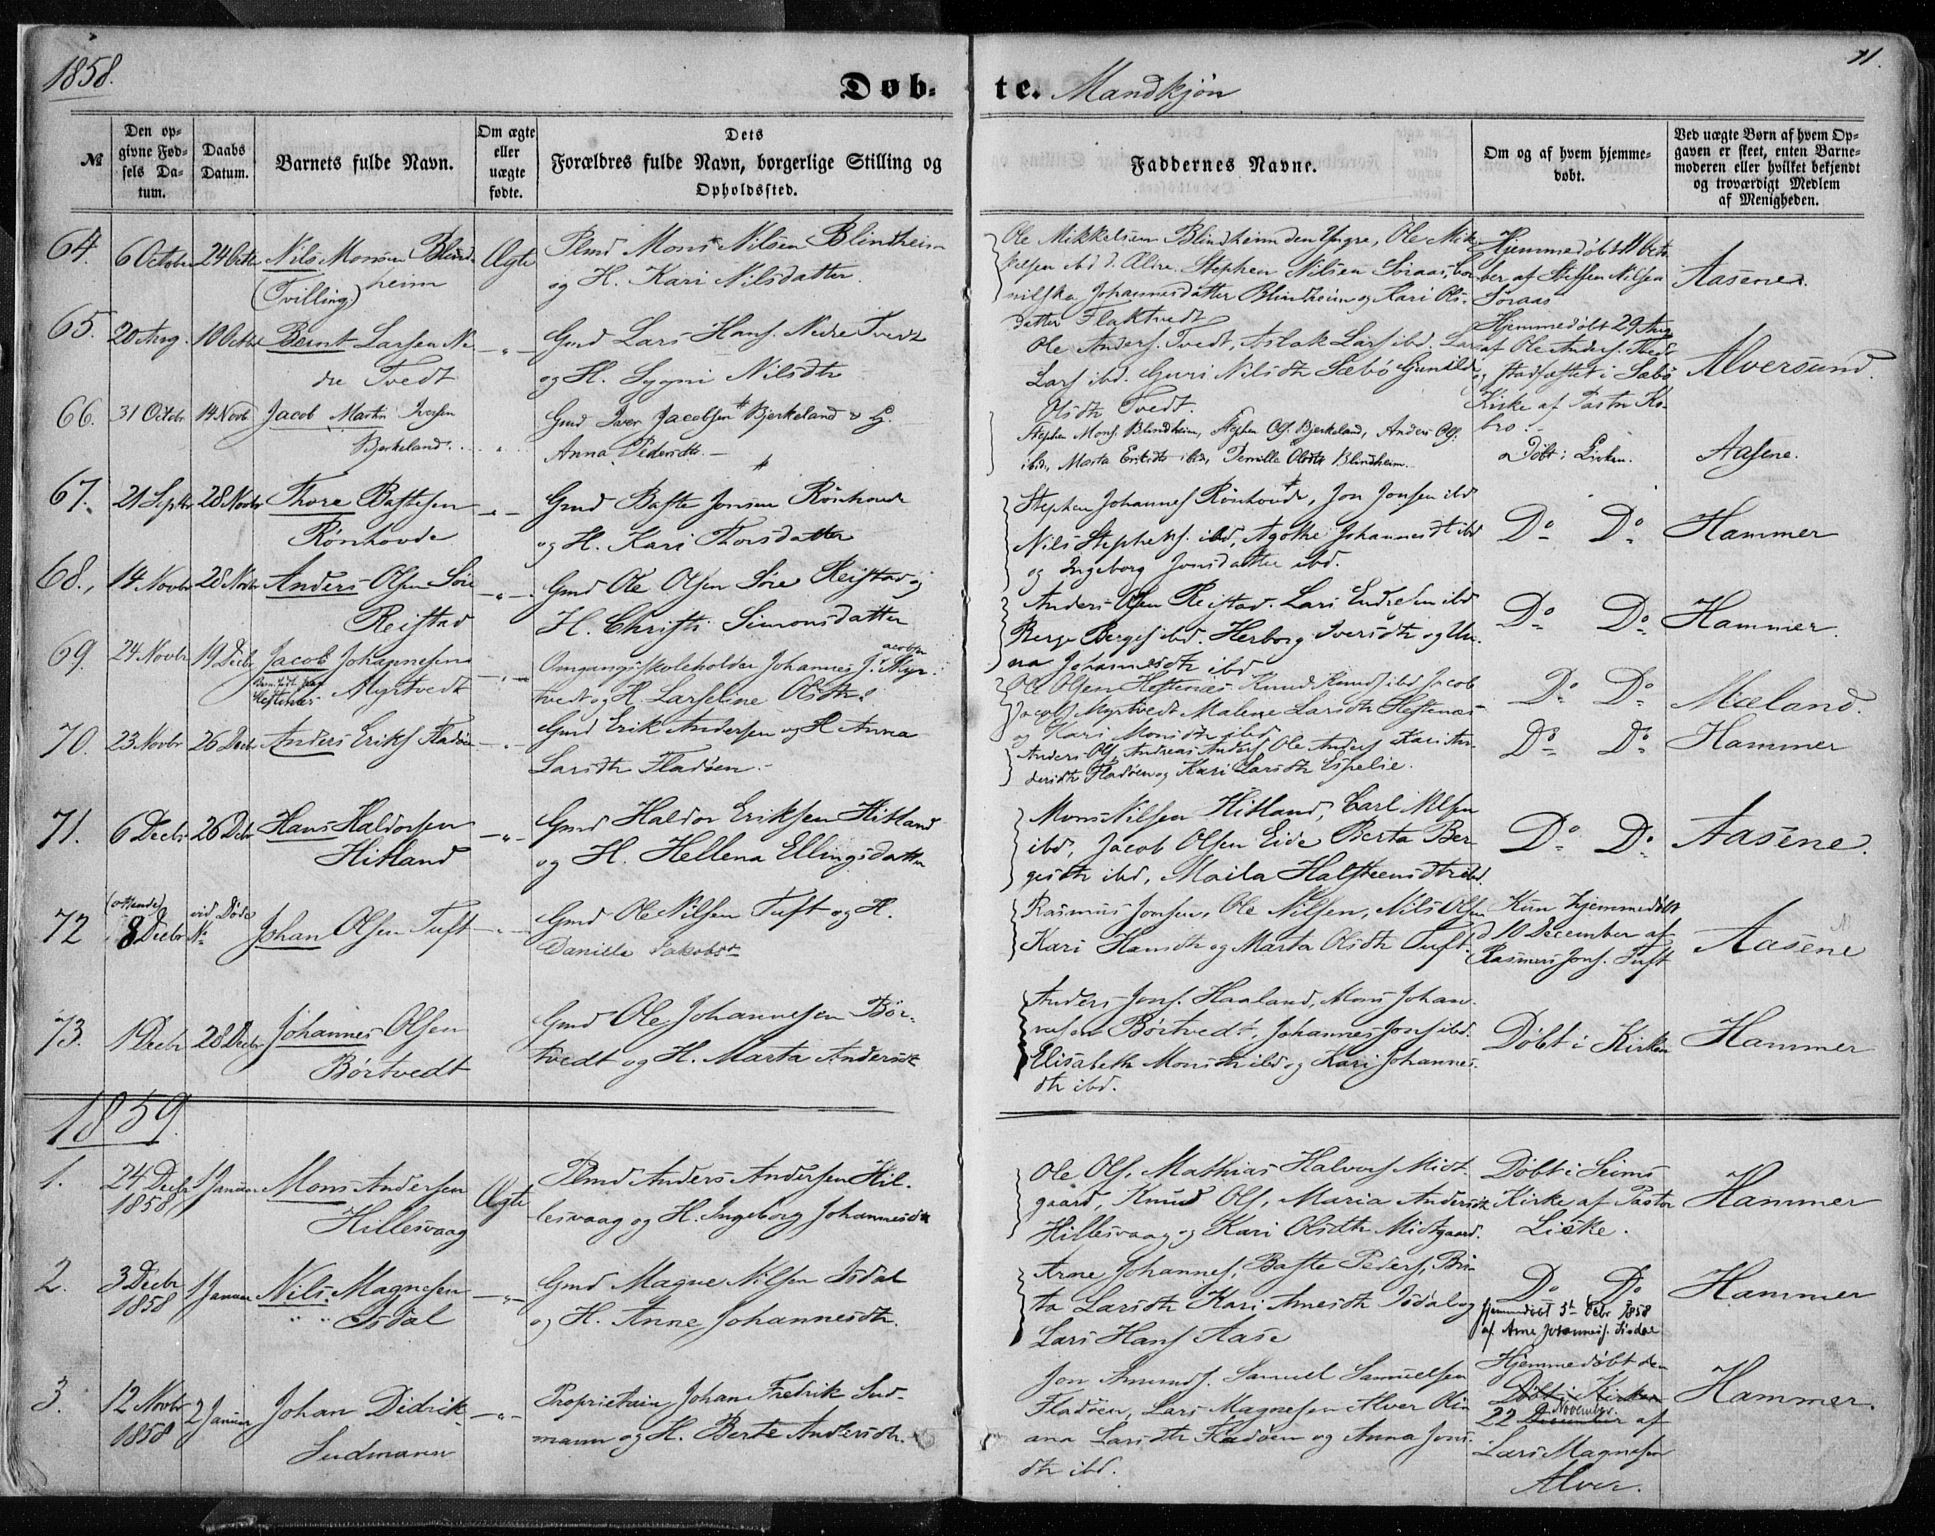 1858.
11.
Døb-
te. Mandkjön
№
Den op-
givne Fød-
sels Da-
tum.
Daabs
Datum.
Barnets fulde Navn.
Om ægte
eller
uægte
fødte.
Dets
Forældres fulde Navn, borgerlige Stilling og
Opholdssted.
Faddernes Navne.
Om og af hvem hjemme-
døbt.
Ved uægte Børn af hvem Op-
gaven er skeet, enten Barne-
moderen eller hvilket bekjendt
og troværdigt Medlem
af Menigheden.
64.
6 October
24 Octr
Nils Monsen Blind-
heim
(Tvilling)
Ægte
Plmd Mons Nilsen Blindheim
og H. Kari Nilsdatter.
Ole Mikkelsen Blindheim den Yngre, Ole Mik-
kelsen ibd d. Ældre. Stephen Nilsen Soraas, Cor-
nilska Johannesdatter Blindheim og Kari Ols-
datter Flaktvedt
Hjemmedöbt Octo-
ber af Steffen Nilsen
Soraas
Aasene.
65.
20 Aug.
10 Octr
Bernt Larsen Ne-
dre Tvedt
Gmd Lars Hans. Nedre Tvedt
og H. Sygni Nilsdtr
Ole Anders. Tvedt, Aslak Lars. ibd. Lars
Lars. ibd. Guri Nilsdtr Sæbö Gunild
Olsdtr Tvedt.
Hjemmedöbt 29 Aug
af Ole Anders. Tvedt
og stadfæstet i Sæbö
Kirke af Pastor Ko-
bro.
Alversund.
66.
31 Octobr
14 Novb
Jacob Martin Iversen
Bjerkeland.
Gmd Iver Jacobsen Bjerkeland & H.
Anna Pedersdtr. —
Stephen Mons. Blindheim, Stephen Ols. Bjerkeland, Anders Ols.
ibd, Marta Eriksdtr ibd, Pernille Olsdtr Blindheim.
Döbt i Kirken.
Aasene.
67.
21 Septbr
28 Novbr
Thore Bastesen
Rönhovde
Gmd Baste Jonsen Rönhovde
og H. Kari Thorsdatter
Stephen Johannes. Rönhovde, Jon Jonsen ibd
Nils Stephens. ibd, Agathe Johannesdt ibd
og Ingeborg Jonsdatter ibd.
Do Do
Hammer
68.
14 Novbr
28 Novbr
Anders Olsen Sore
Reistad
Gmd Ole Olsen Söre Reistad og
H. Christi Simonsdatter
Anders Olsen Reistad. Lars Endresen ibd
Berge Berges. ibd. Herborg Iversdtr og Un-
na Johannesdtr ibd
Do Do
Hammer.
69.
24 Novbr
19 Decbr
Jacob Johannesen
Myrtvedt
Heftenæs
Omgangsskoleholder Johannes Jacobsen Myr-
tvedt og H. Larseline Olsdtr
Ole Olsen Heftenæs Knud Knuds. ibd Jacob
Jacobs. Myrtvedt Malene Larsdtr Heftenæs
og Kari Monsdtr ibd
Do Do
Mæland.
70.
23 Novbr
26 Decbr
Anders Eriks. Fladöen
Gmd Erik Andersen og H. Anna
Larsdtr Fladöen.
Anders Ols. Andreas Anders. Ole Anders. Kari An-
dersdtr Fladöen og Kari Larsdtr Espelie.
Do Do
Hammer
71.
6 Decbr
26 Debr
Hans Haldorsen
Hitland
Gmd Haldor Eriksen Hitland
og H. Hellena Ellingsdatter
Mons Nilsen Hitland, Carl Nilsen
ibd, Jacob Olsen Eide Berta Ber-
gesdtr ibd, Maila Halsteensdtr ibd.
Do Do
Aasene.
72
(ottende)
8 Decbr
vid. Döde
№
Johan Olsen Tuft
Gmd Ole Nilsen Tuft og H.
Danielle Jakobsdtr
Rasmus Jonsen, Ole Nilsen, Nils Olsen
Kari Hansdtr og Marta Olsdtr Tuft.
Kun hjemmedöbt
d 10 December af
Rasmus Jons. Tuft
Aasene
73.
1 Decbr
28 Decbr
Johannes Olsen
Börtvedt
Gmd Ole Johannesen Bör-
tvedt og H. Marta Andersdtr
Anders Jons. Haaland, Mons Johan-
nesen Börtvedt, Johannes Jons. ibd.
Elisabeth Monsdtr ibd og Kari Johannes-
dtr ibd.
Döbt i Kirken
Hammer
1859.
1.
24 Decbr
1858
1 Januar
Mons Andersen
Hillesvaag
Ægte
Plmd Anders Andersen Hil-
lesvaag og H. Ingeborg Johannesdtr
Ole Ols. Mathias Halvors. Midt-
gaard, Knud Ols, Maria Andersdtr
Hillesvaag og Kari Olsdtr Midtgaard.
Döbt i Seims
Kirke af Pastor
Liske.
Hammer
2.
3 Decbr
1858
1 Januar
Nils Magnesen
Isdal
Gmd Magne Nilsen Isdal
og H. Anne Johannesdtr.
Arne Johannes, Baste Peders. Bri-
ta Larsdtr Kari Arnesdtr Isdal og
Lars Hans. Aase
Do Do
hjemmedöbt 5t Debr 1858
af Arne Johannes. Isdal
Hammer
3.
12 Novbr
1858
2 Januar
Johan Didrik
Sudmann
Proprietair Johan Fredrik Sud-
mann og H. Berte Andersdtr.
Jon Amunds. Samuel Samuelsen
Fladöen, Lars Magnesen Alver Oli-
ana Larsdtr Fladöen og Anna Jons-
dtr ibd.
Hjemmedöbt den
Döbt i Kirken
November
22 December af
Lars Magnesen
Alver.
Hammer.